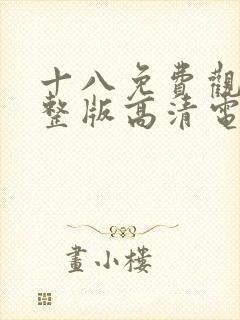 十八免費觀
整版高清電
畫小樓